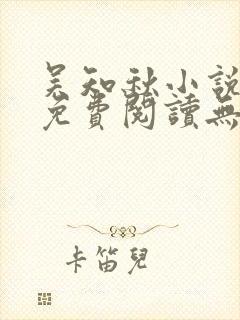 吴知秋小說
免費閱讀無
卡笛兒